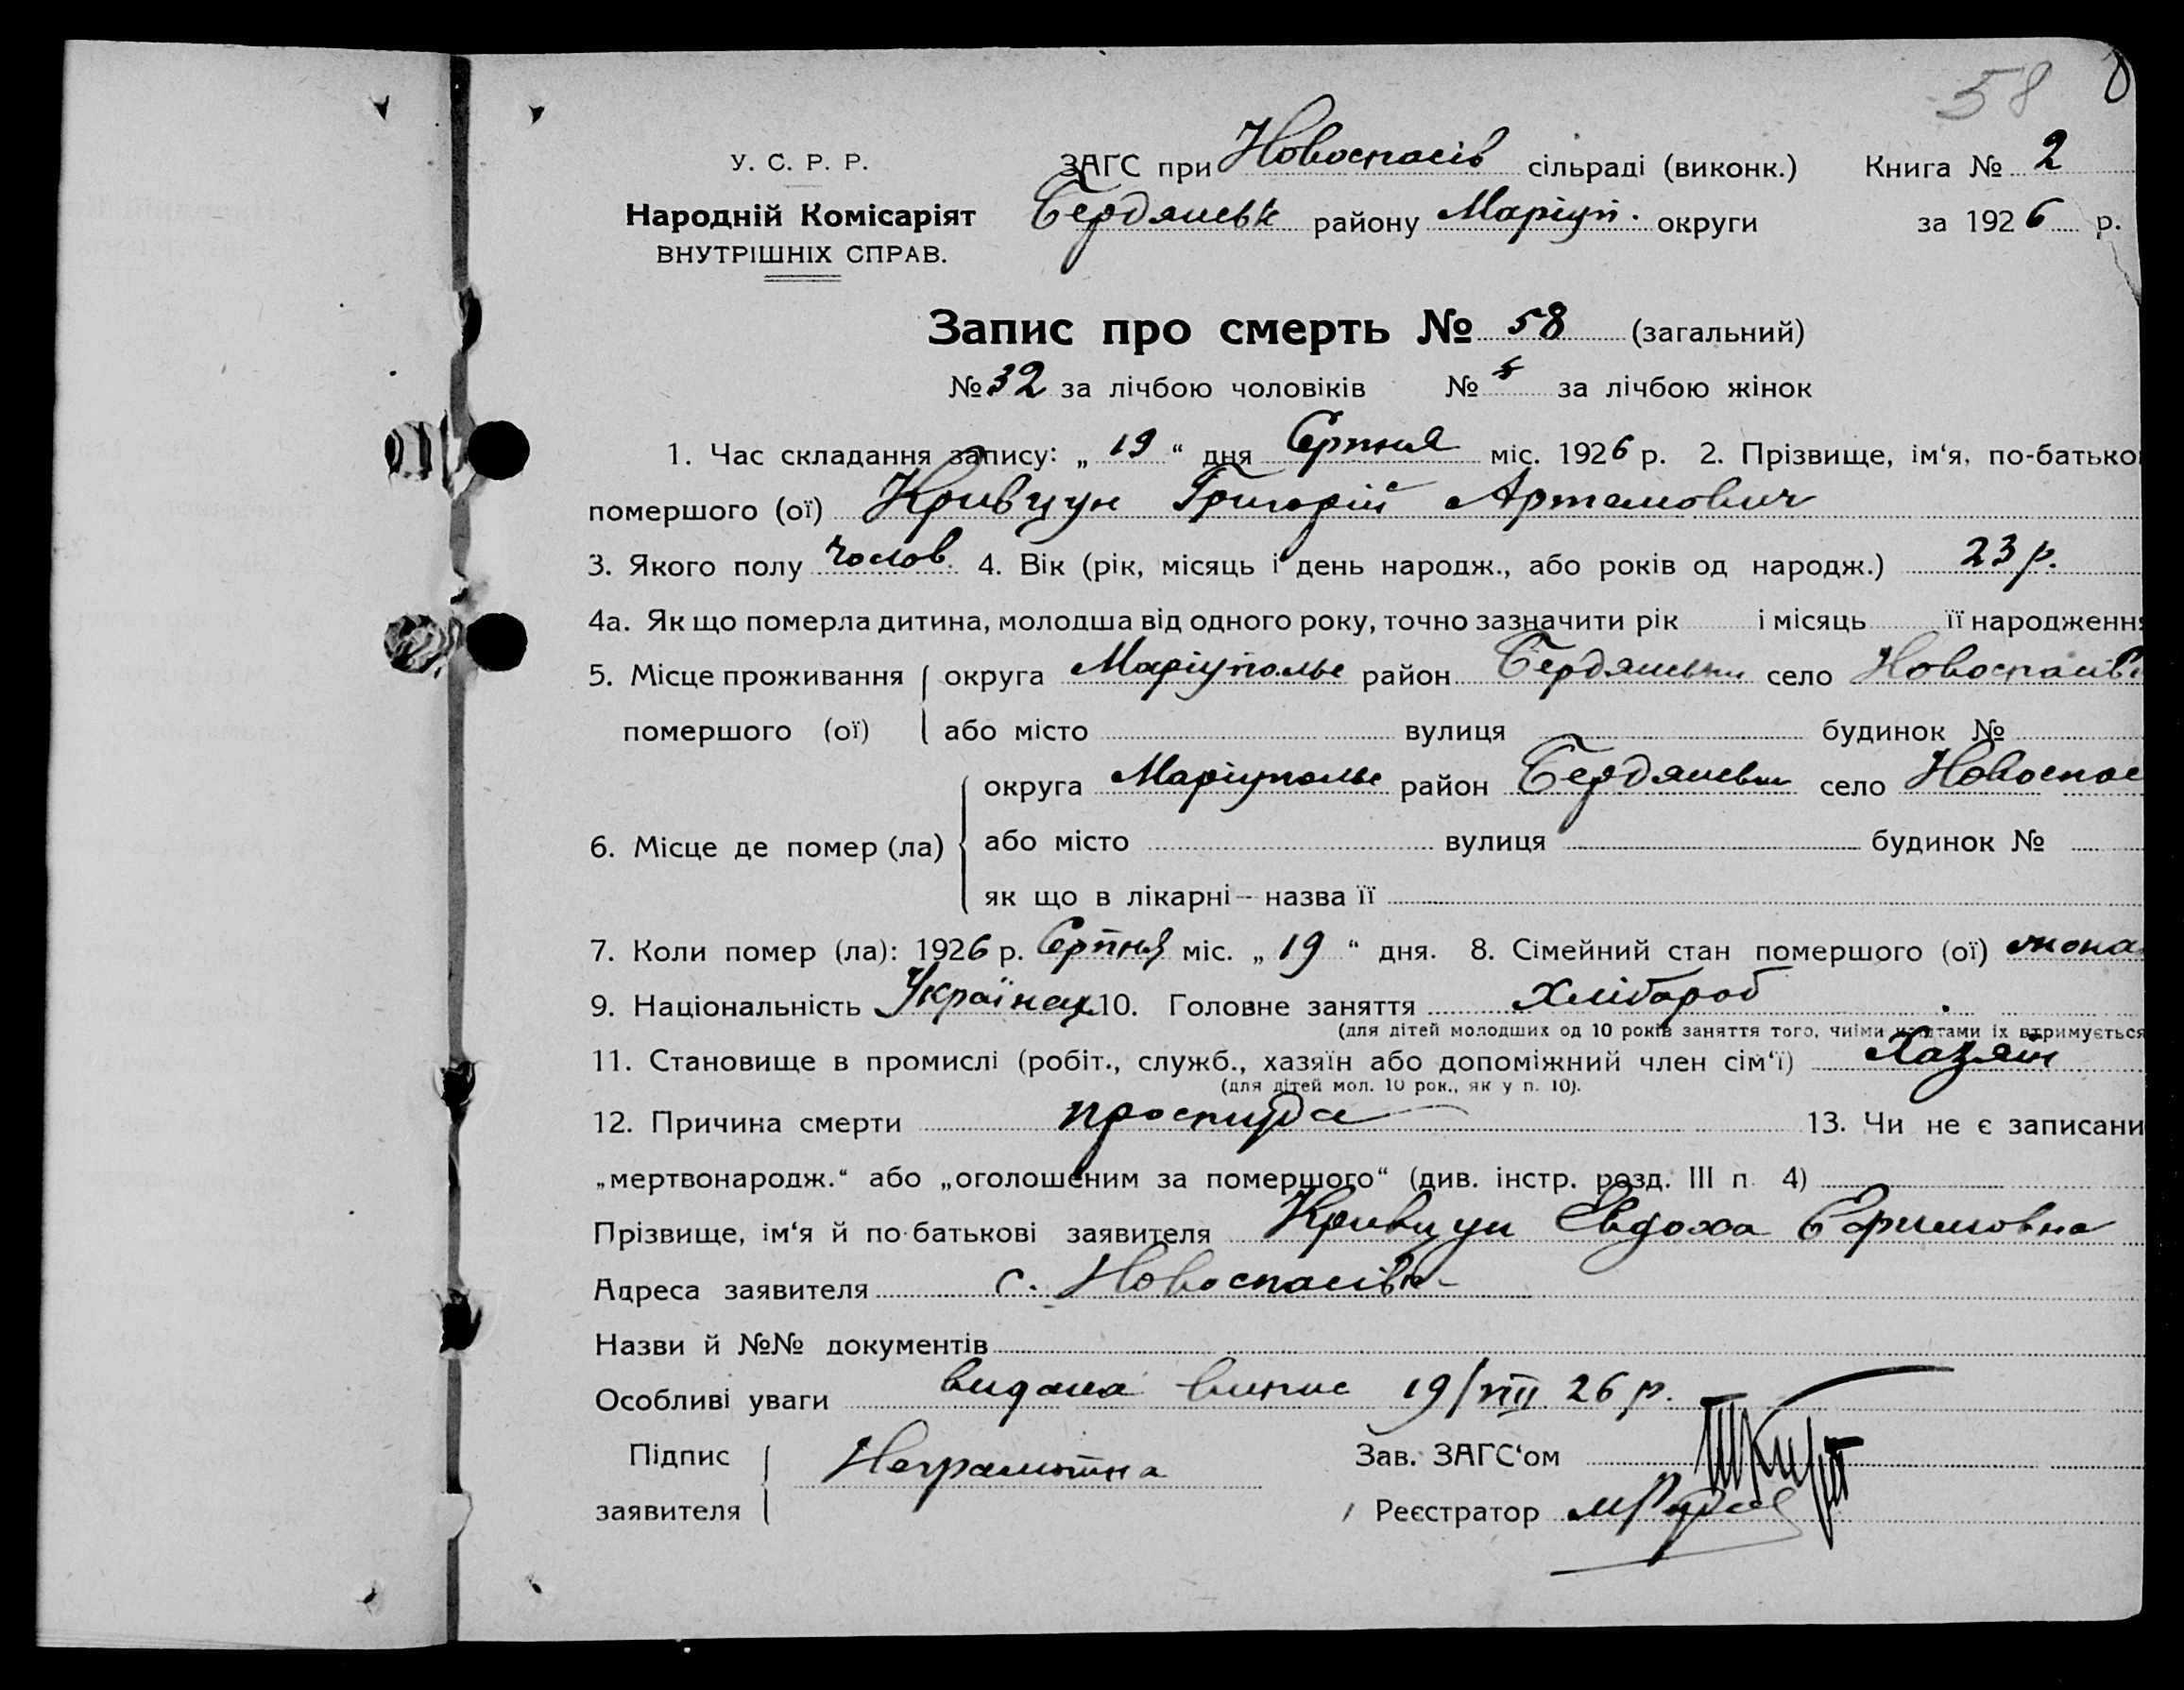 58
У. С. Р. Р.
Народній Комісаріят
ВНУТРІШНІХ СПРАВ.
ЗАГС при Новоспасів сільраді (виконк.) Книга № 2
Бердянськ району Маріуп. округи за 1926 р.
Запис про смерть № 58 (загальний)
№ 32 за лічбою чоловіків № за лічбою жінок
1. Час складання запису: „ 19 “ дня Серпня міс. 1926 р. 2. Прізвище, ім‘я, по-батько
помершого (ої) Кривцун Григорій Артемович
3. Якого полу чолов. 4. Вік (рік, місяць і день народж., або років од народж.) 23 р.
4а. Як що померла дитина, молодша від одного року, точно зазначити рік і місяць її народженн
5. Місце проживання округа Маріупольс район Бердянськи село Новоспасівк
помершого (ої) або місто вулиця будинок №
округа Маріупольс район Бердянськ село Новоспас
6. Місце де помер (ла) або місто вулиця будинок №
як що в лікарні — назва її
7. Коли помер (ла): 1926 р. Серпня міс. „ 19 “ дня. 8. Сімейний стан помершого (ої) жона
9. Національність Українец 10. Головне заняття Хлібороб
(для дітей молодших од 10 років заняття того, чиїми коштами їх втримується
11. Становище в промислі (робіт., служб., хазяїн або допоміжний член сім‘ї) Хазяїн
(для дітей мол. 10 рок., як у п. 10).
12. Причина смерти простуда 13. Чи не є записани
„мертвонародж.“ або „оголошеним за помершого“ (див. інстр. розд. III п. 4)
Прізвище, ім‘я й по-батькові заявителя Кривцун Евдоха Ефимовна
Адреса заявителя с. Новоспасівк
Назви й №№ документів
Особливі уваги видана випис 19/VIII 26 р.
Підпис Неграмотна Зав. ЗАГС‘ом
заявителя Реєстратор